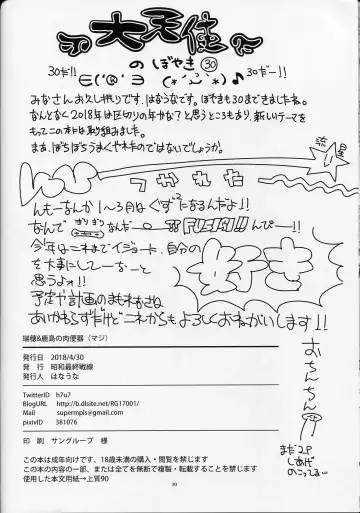 大天使
の ぼやき 30
30だ!! 30だー!!
みなさんお久し振りです。はなうなです。ぼやきも30まできましたね。
なんとなく2018年は区切りの年かな?と思うところもあり、新しいテーマを
もってこの本に取り組みました。
まあ、ぼちぼちうまくやれたのではないでしょうか。
流星
つかれた
んもーなんか1〜3月はぐずぐずになるんだよ!!
なんでぎりぎりなんだ
今年はこれまでイジョーに、自分の
を大事にしてーなーと
思うよォ!!
好き
予定や計画のまもれなさは
あいかわらずだけどこれからもよろしくおねがいします!!
おちんちん
まだ2P
しあげ
のこってる…
瑞穂&鹿島の肉便器(マジ)
発行日 2018/4/30
発 行 昭和最終戦線
発行人 はなうな
TwitterID h7u7
BlogURL http://b.dlsite.net/RG17001/
Mail supermpls@gmail.com
pixivID 381076
印 刷 サングループ 様
この本は成年向けです、18歳未満の購入・閲覧を禁じます
この本の内容の一部、または全てを無断で複製・転載することを禁じます
使用した本文用紙→上質90
30